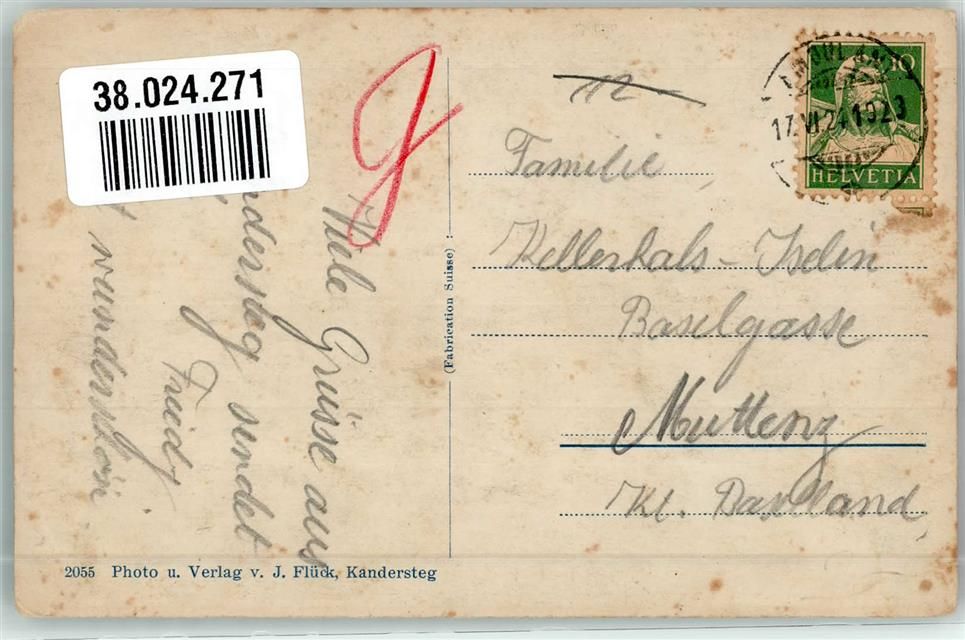 38.024.271
Viele Grüsse aus
ndersteg sendet
Friedy
wunderschön
(Fabrication Suisse)
Familie
Kellerhals-Iselin
Baselgasse
Muttenz
Kt. Baselland
10
HELVETIA
17.VI.24
2055 Photo u. Verlag v. J. Flück, Kandersteg